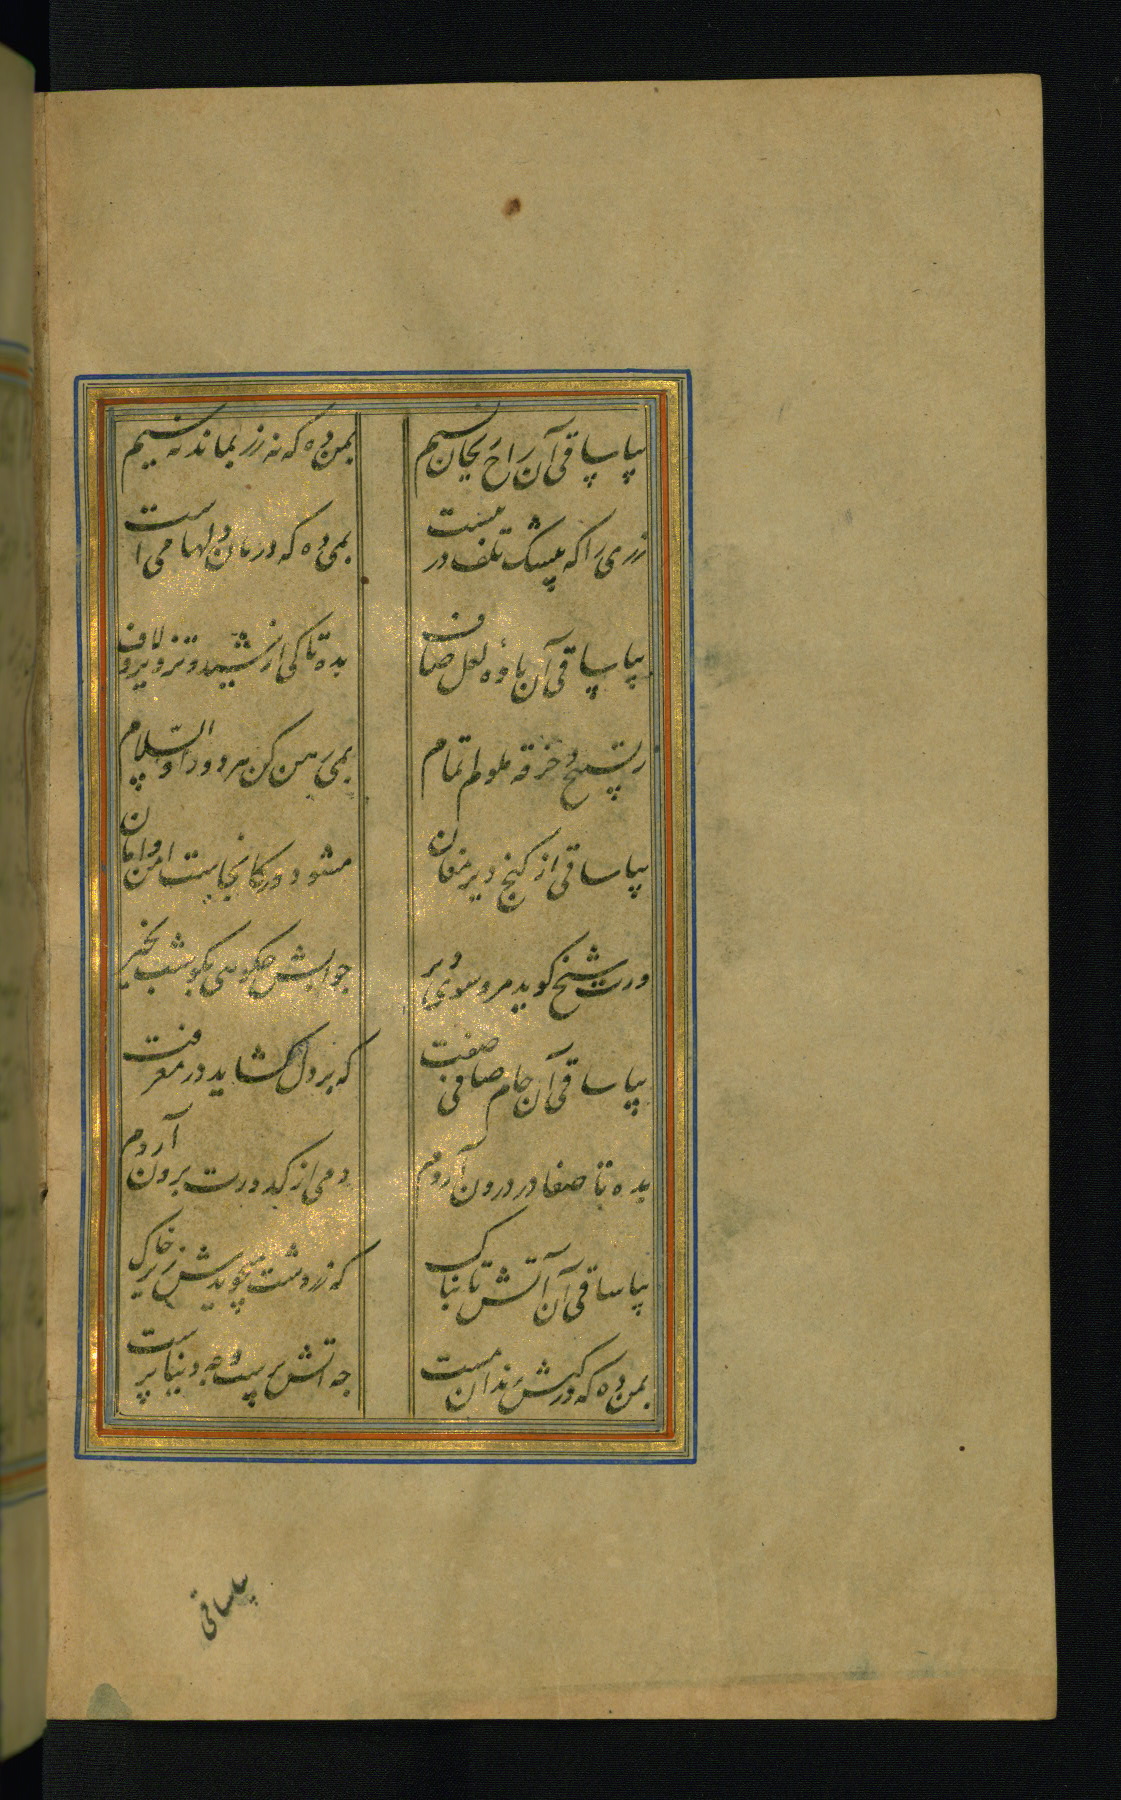 بیا ساقی آن راح ریحان نسیم
بمن ده که نه زر بماند نه سیم
زری را که بیشک تلف در پیست
بمی ده که درمان دلها می است
بیا ساقی آن بادهٔ لعل صاف
بده تا کی از شید و تزویر و لاف
ز تسبیح و خرقه ملولم تمام
بمی رهن کن هر دو را والسّلام
بیا ساقی از کنج دیر مغان
مشو دور کانجاست امن و امان
ورت شیخ گوید مرو سوی دیر
جوابش چگویی بگو شب بخیر
بیا ساقی آن جام صافی صفت
که بر دل گشاید در معرفت
بده تا صفا در درون آردم
دمی از کدورت برون آردم
بیا ساقی آن آتش تابناک
که زردشت میجویدش زیر خاک
بمن ده که در کیش رندان مست
چه آتش پرست و چه دنیا پرست
بیا ساقی